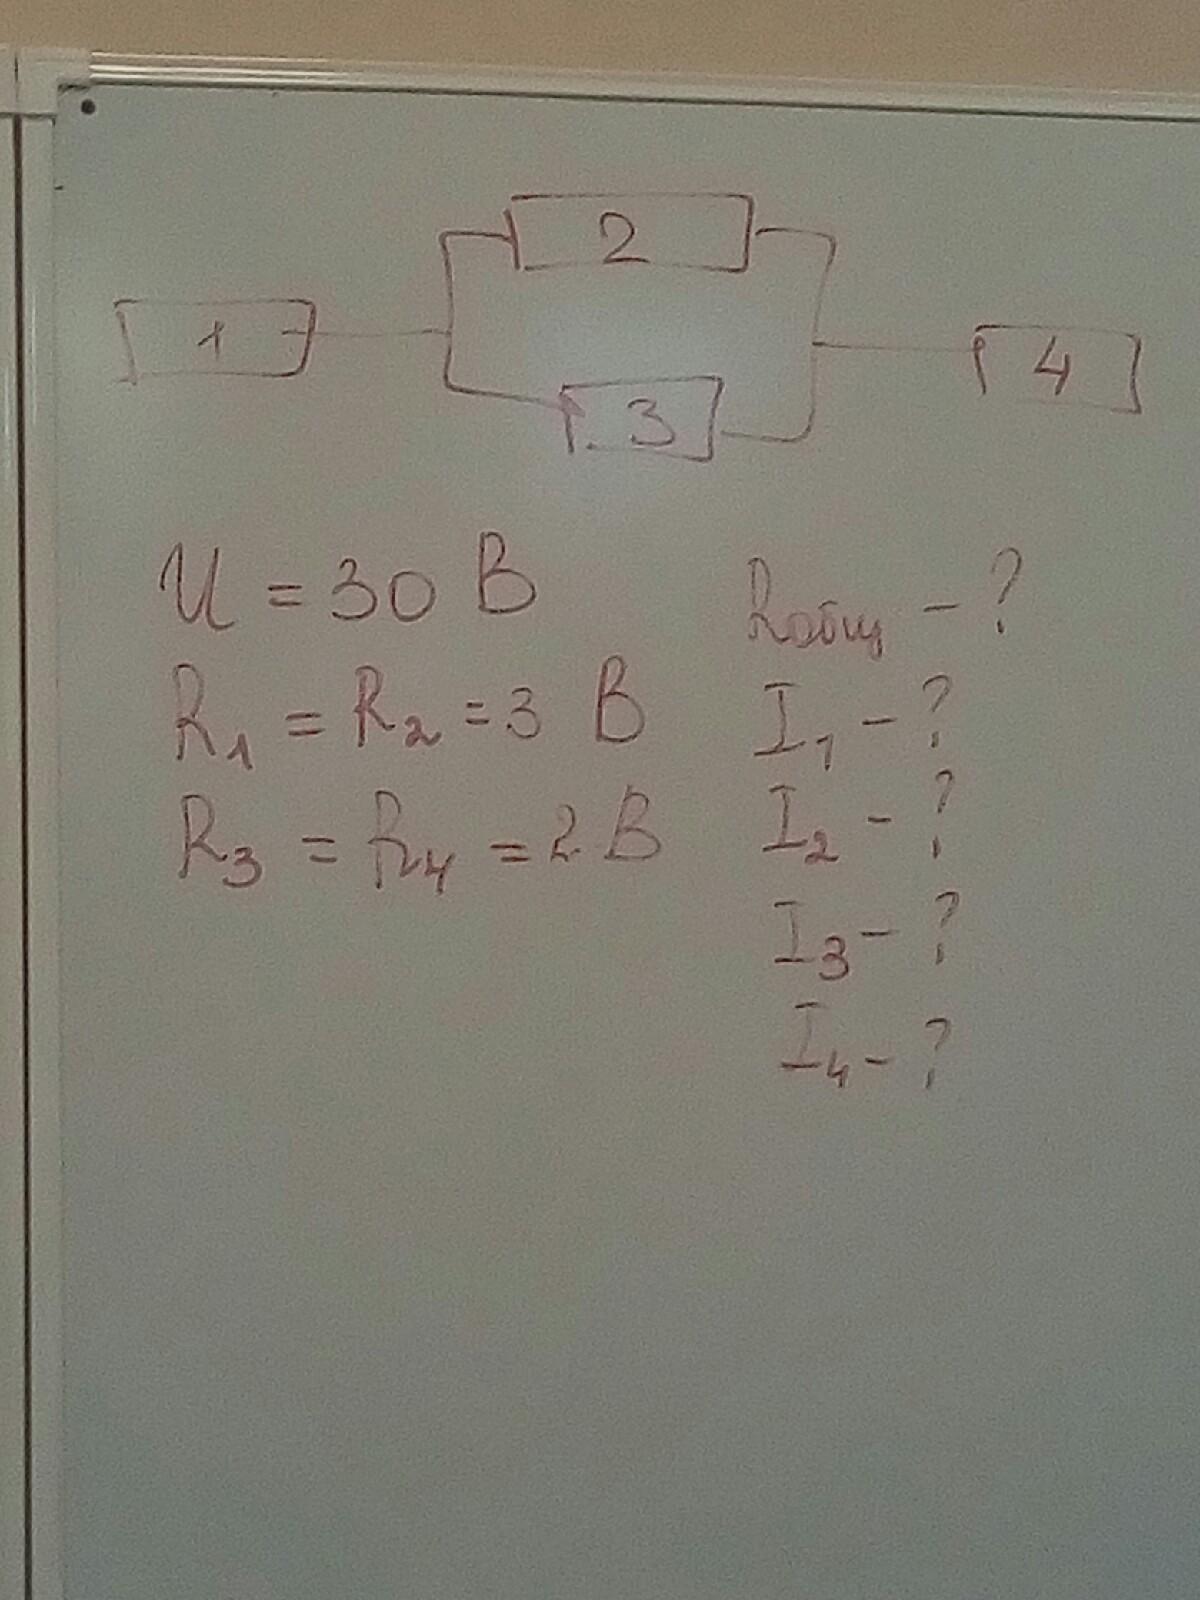 2
1
4
3
U = 30 В
R₁ = R₂ = 3 В
R₃ = R₄ = 2 В
Rобщ - ?
I₁ - ?
I₂ - ?
I₃ - ?
I₄ - ?